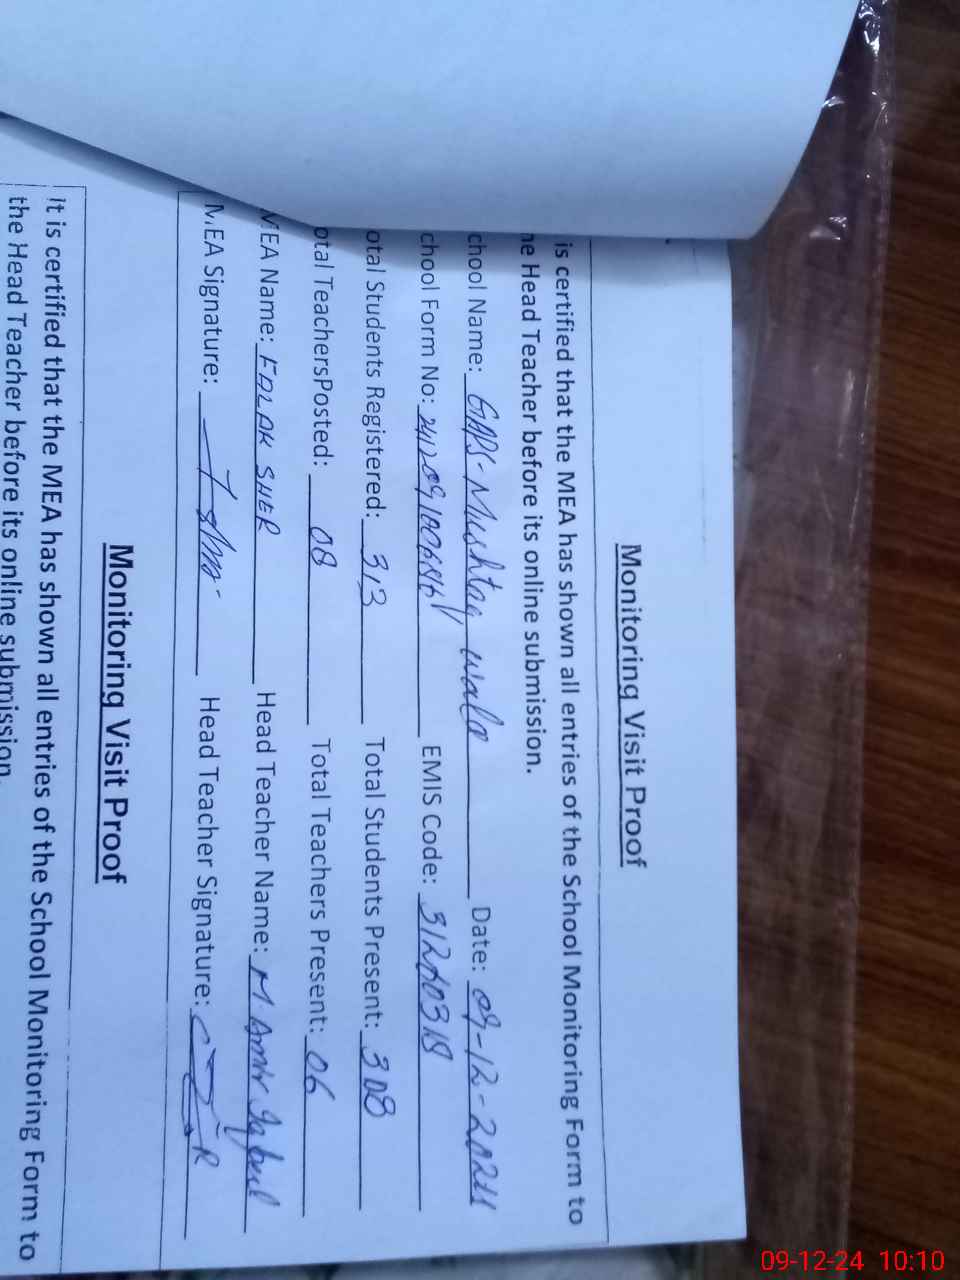 Monitoring Visit Proof
is certified that the MEA has shown all entries of the School Monitoring Form to
he Head Teacher before its online submission.
chool Name: GAPS-Mushtaq wala Date: 09-12-2024
chool Form No: EMIS Code: 31240318
otal Students Registered: 313 Total Students Present: 308
otal TeachersPosted: 08 Total Teachers Present: 06
MEA Name: FALAK SHER Head Teacher Name: M. Amir Iqbal
MEA Signature: Head Teacher Signature:
Monitoring Visit Proof
It is certified that the MEA has shown all entries of the School Monitoring Form to
the Head Teacher before its online submission.
09-12-24 10:10